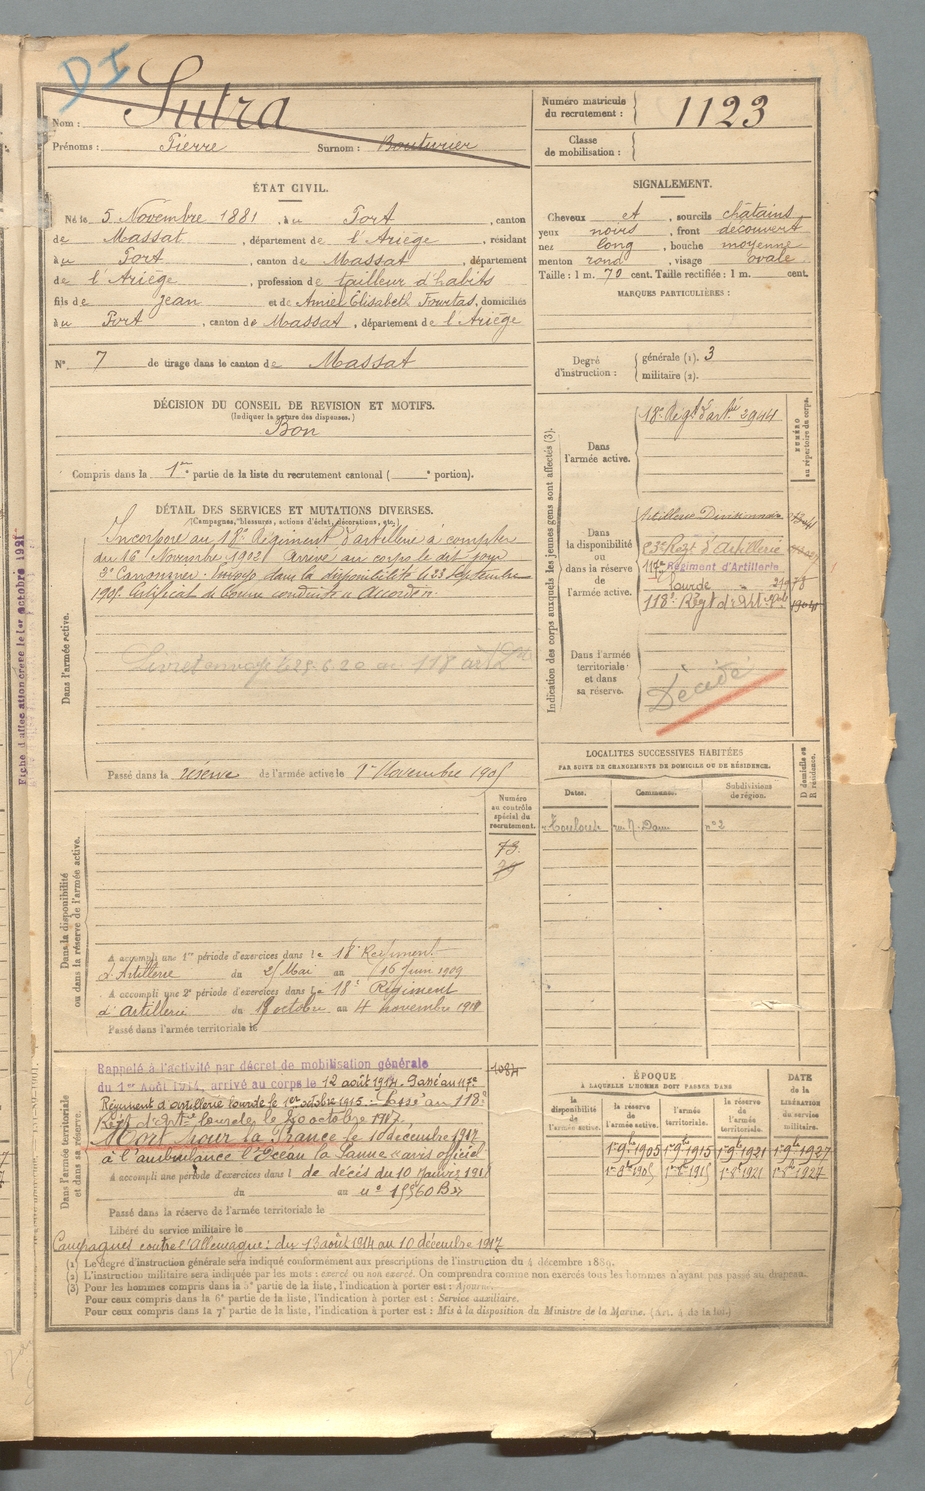 DI
Nom : Sutra
Prénoms : Pierre Surnom : Bouturier
Numéro matricule du recrutement : 1123
Classe de mobilisation :
ÉTAT CIVIL.
Né le 5 Novembre 1881, à u Port, canton
de Massat, département de l'Ariège, résidant
à u Port, canton de Massat, département
de l'Ariège, profession de tailleur d'habits
fils de Jean et de Amiel Elisabeth Fourtas, domiciliés
à u Port, canton de Massat, département de l'Ariège
N° 7 de tirage dans le canton de Massat
SIGNALEMENT.
Cheveux et, sourcils châtains
yeux noirs, front découvert
nez long, bouche moyenne
menton rond, visage ovale
Taille : 1 m. 70 cent. Taille rectifiée : 1 m. cent.
MARQUES PARTICULIÈRES :
Degré d'instruction : générale (1). 3
militaire (2).
DÉCISION DU CONSEIL DE REVISION ET MOTIFS.
(Indiquer la nature des dispenses.)
Bon
Compris dans la 1re partie de la liste du recrutement cantonal ( e portion).
DÉTAIL DES SERVICES ET MUTATIONS DIVERSES.
(Campagnes, blessures, actions d'éclat, décorations, etc.)
Dans l'armée active.
Incorporé au 18e Régiment d'artillerie à compter
du 16 Novembre 1902 arrivé au corps le dit jour
2e Canonnier. Envoyé dans la disponibilité le 23 Septembre
1905. Certificat de bonne conduite "Accordé".
Livret envoyé le 25.6.20 au 118 art
Passé dans la réserve de l'armée active le 1er Novembre 1905
Fiche d'affectation créée le 1er octobre 1921
Indication des corps auxquels les jeunes gens sont affectés (3).
NUMÉRO au répertoire du corps.
Dans l'armée active.
18e Régt d'artie 3944
Dans la disponibilité ou dans la réserve de l'armée active.
Artillerie Divisionnaire
23e Régt d'Artillerie
117me Régiment d'Artillerie
lourde
118e Régt d'Art
Dans l'armée territoriale et dans sa réserve.
Décédé
LOCALITÉS SUCCESSIVES HABITÉES
PAR SUITE DE CHANGEMENTS DE DOMICILE OU DE RÉSIDENCE.
D domicile ou R résidence.
Dates. Communes. Subdivisions de région.
Toulouse n° 2
Dans la disponibilité ou dans la réserve de l'armée active.
Numéro au contrôle spécial du recrutement.
73
A accompli une 1re période d'exercices dans le 18e Régiment
d'Artillerie du 25 Mai au 16 Juin 1909
A accompli une 2e période d'exercices dans le 18e Régiment
d'Artillerie du octobre au 4 novembre
Passé dans l'armée territoriale le
Dans l'armée territoriale et dans sa réserve.
1084
Rappelé à l'activité par décret de mobilisation générale
du 1er Août 1914, arrivé au corps le 12 août 1914. Passé au 117e
Régiment d'artillerie lourde le 1er octobre 1915. Passé au 118e
Régt d'Artie lourde le octobre 1917.
Mort pour la France le 10 décembre 1917
à l'ambulance l'Océan la Panne avis officiel
A accompli une période d'exercices dans l de décès du 10 Janvier 191
du au n°
Passé dans la réserve de l'armée territoriale le
Libéré du service militaire le
Campagnes contre l'Allemagne : du 13 août 1914 au 10 décembre 1917
ÉPOQUE
À LAQUELLE L'HOMME DOIT PASSER DANS
DATE de la LIBÉRATION du service militaire.
la disponibilité de l'armée active. la réserve de l'armée active. l'armée territoriale. la réserve de l'armée territoriale.
1er 9bre 1905 1er 9bre 1915 1er 9bre 1921 1er 9bre 1927
1er 8bre 1905 1er 8bre 1915 1er 8bre 1921 1er 8bre 1927
(1) Le degré d'instruction générale sera indiqué conformément aux prescriptions de l'instruction du 4 décembre 1889.
(2) L'instruction militaire sera indiquée par les mots : exercé ou non exercé. On comprendra comme non exercés tous les hommes n'ayant pas passé au drapeau.
(3) Pour les hommes compris dans la 5e partie de la liste, l'indication à porter est : Ajourné.
Pour ceux compris dans la 6e partie de la liste, l'indication à porter est : Service auxiliaire.
Pour ceux compris dans la 7e partie de la liste, l'indication à porter est : Mis à la disposition du Ministre de la Marine. (Art. 4 de la loi.)